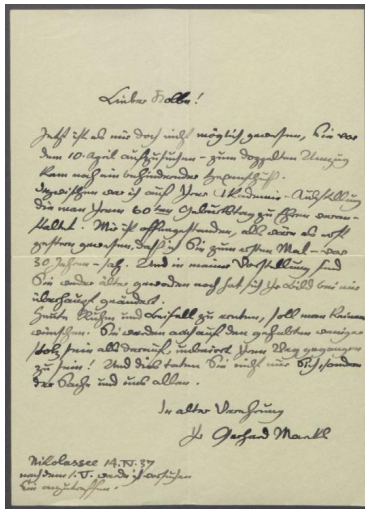 Lieber Kolbe!
Jetzt ist es mir doch nicht möglich gewesen, Sie vor
dem 10. April aufzusuchen – zum doppelten Umzug
kam noch ein behindernder Hexenschuß.
Inzwischen war ich auf Ihrer Akademie-Ausstellung
die man Ihrem 60ten Geburtstag zu Ehren veran-
staltet. Mir ist als wäre es erst
gestern gewesen, daß ich Sie zum ersten Mal – vor
30 Jahren – sah. Und in meiner Vorstellung sind
Sie weder älter geworden noch hat sich Ihr Bild bei mir
überhaupt geändert.
Heute Ruhm und Beifall zu ernten, soll man keinem
wünschen. Sie werden auch auf den gehabten weniger
stolz sein als darauf, unbeirrt Ihren Weg gegangen
zu sein! Und dies taten Sie nicht nur für sich, sondern
der Sache und uns allen.
In alter Verehrung
Ihr Gerhard Marcks
Nikolassee 14.IV.37
nach dem 1. V. werde ich versuchen
Sie anzutreffen.